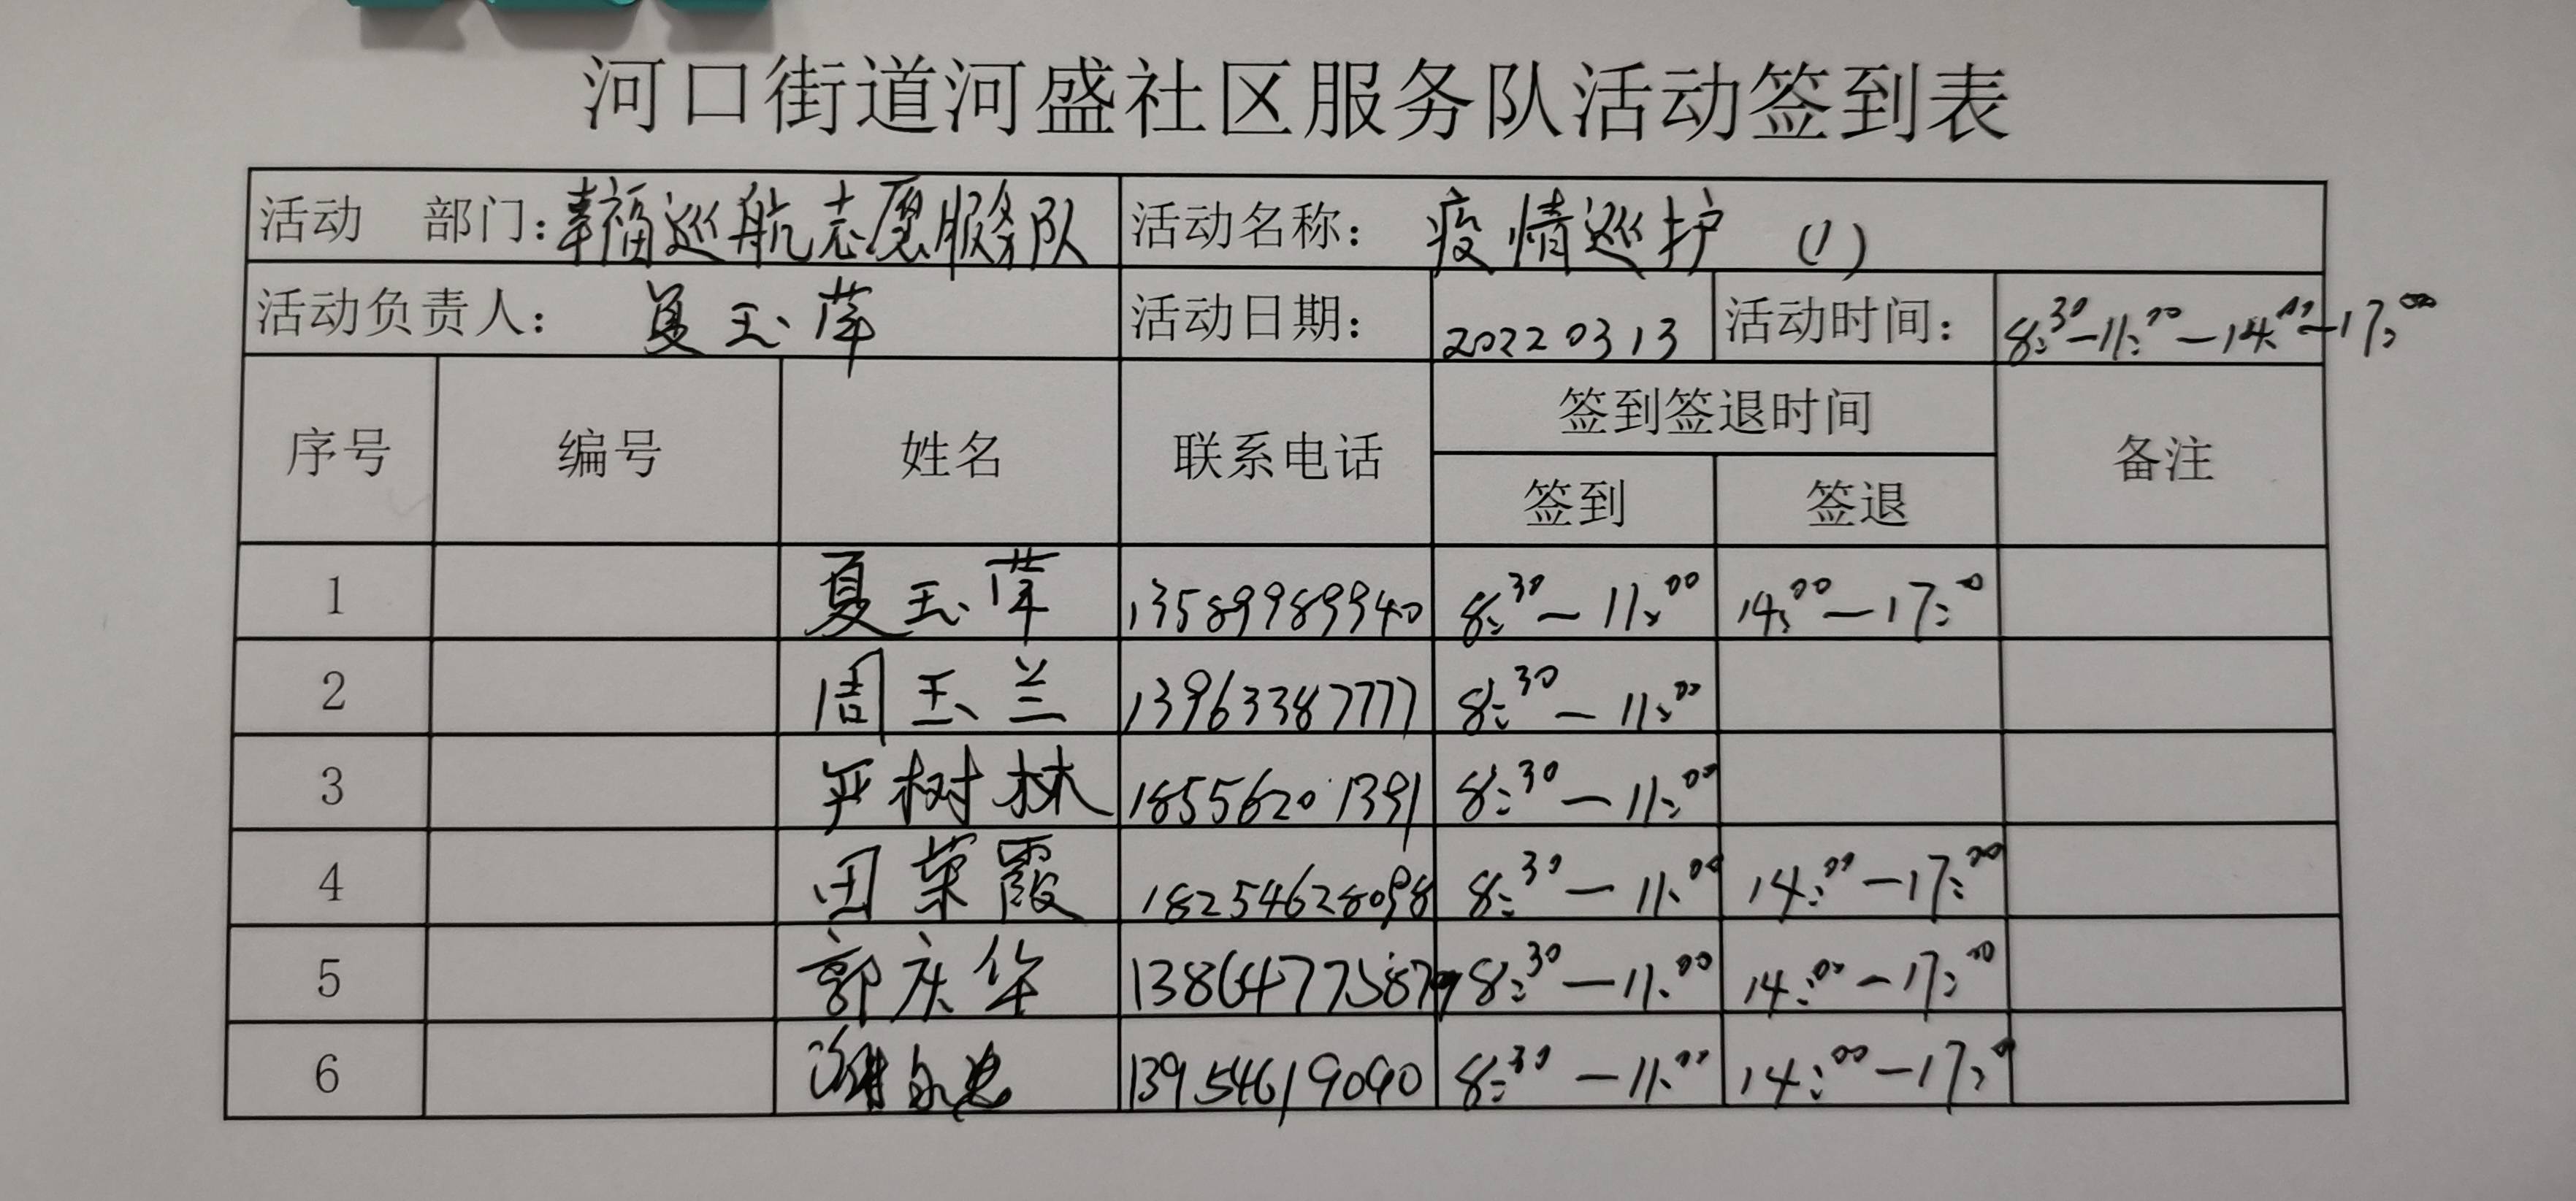 河口街道河盛社区服务队活动签到表
活动 部门：幸福巡航志愿服务队 活动名称： 疫情巡护 （1）
活动负责人： 夏玉萍 活动日期： 20220313 活动时间： 8:30－11:00－14:00－17:00
序号 编号 姓名 联系电话 签到签退时间 备注
签到 签退
1 夏玉萍 13589989940 8:30－11:00 14:00－17:00
2 周玉兰 13963387777 8:30－11:00
3 严树林 18556201391 8:30－11:00
4 田荣霞 18254628098 8:30－11:00 14:00－17:00
5 郭庆华 13864775879 8:30－11:00 14:00－17:00
6 13954619090 8:30－11:00 14:00－17:0